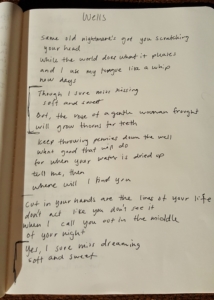 Wells
Same old nightmare's got you scratching
your head
While the world does what it pleases
and I use my tongue like a whip
now days
Though I sure miss kissing
soft and sweet
But, the rose of a gentle woman fraught
will grow thorns for teeth
Keep throwing pennies down the well
what good that will do
for when your water is dried up
tell me, then
where will I find you
Cut in your hands are the lines of your life
don't act like you don't see it
When I call you out in the middle
of your night
Yes, I sure miss dreaming
soft and sweet